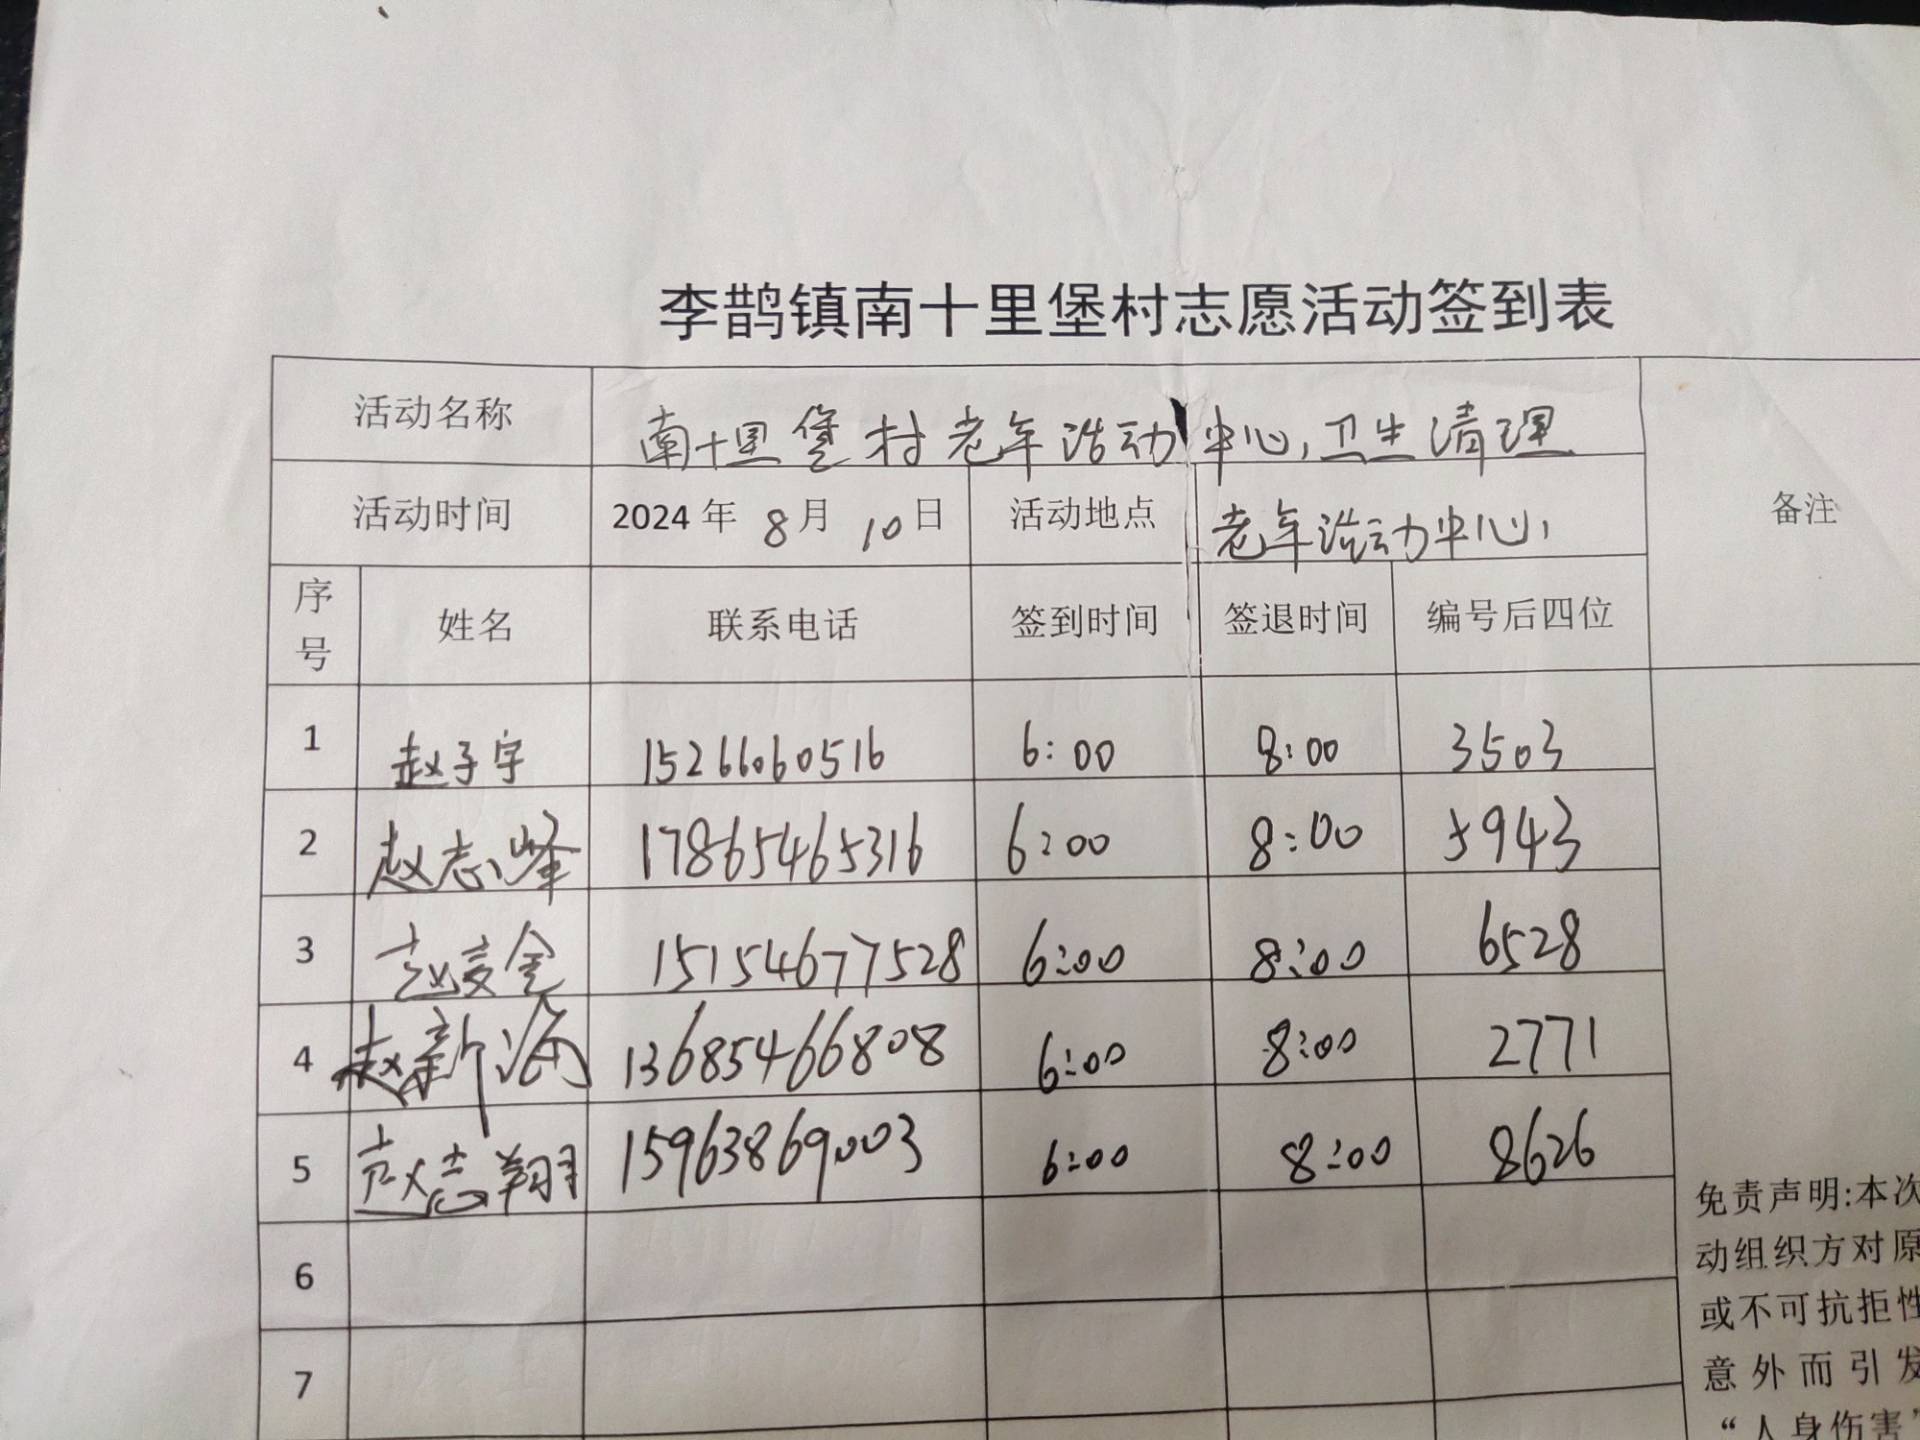 李鹊镇南十里堡村志愿活动签到表
活动名称 南十里堡村老年活动中心,卫生清理
活动时间 2024年 8月 10日 活动地点 老年活动中心, 备注
序号 姓名 联系电话 签到时间 签退时间 编号后四位
1 赵子宇 15266060516 6:00 8:00 3503
2 赵志峰 17865465316 6:00 8:00 5943
3 赵爱金 15154677528 6:00 8:00 6528
4 赵新海 13685466808 6:00 8:00 2771
5 赵志翔 15963869003 6:00 8:00 8626
6
7
免责声明:本次
动组织方对原
或不可抗拒性
意外而引发
“人身伤害”